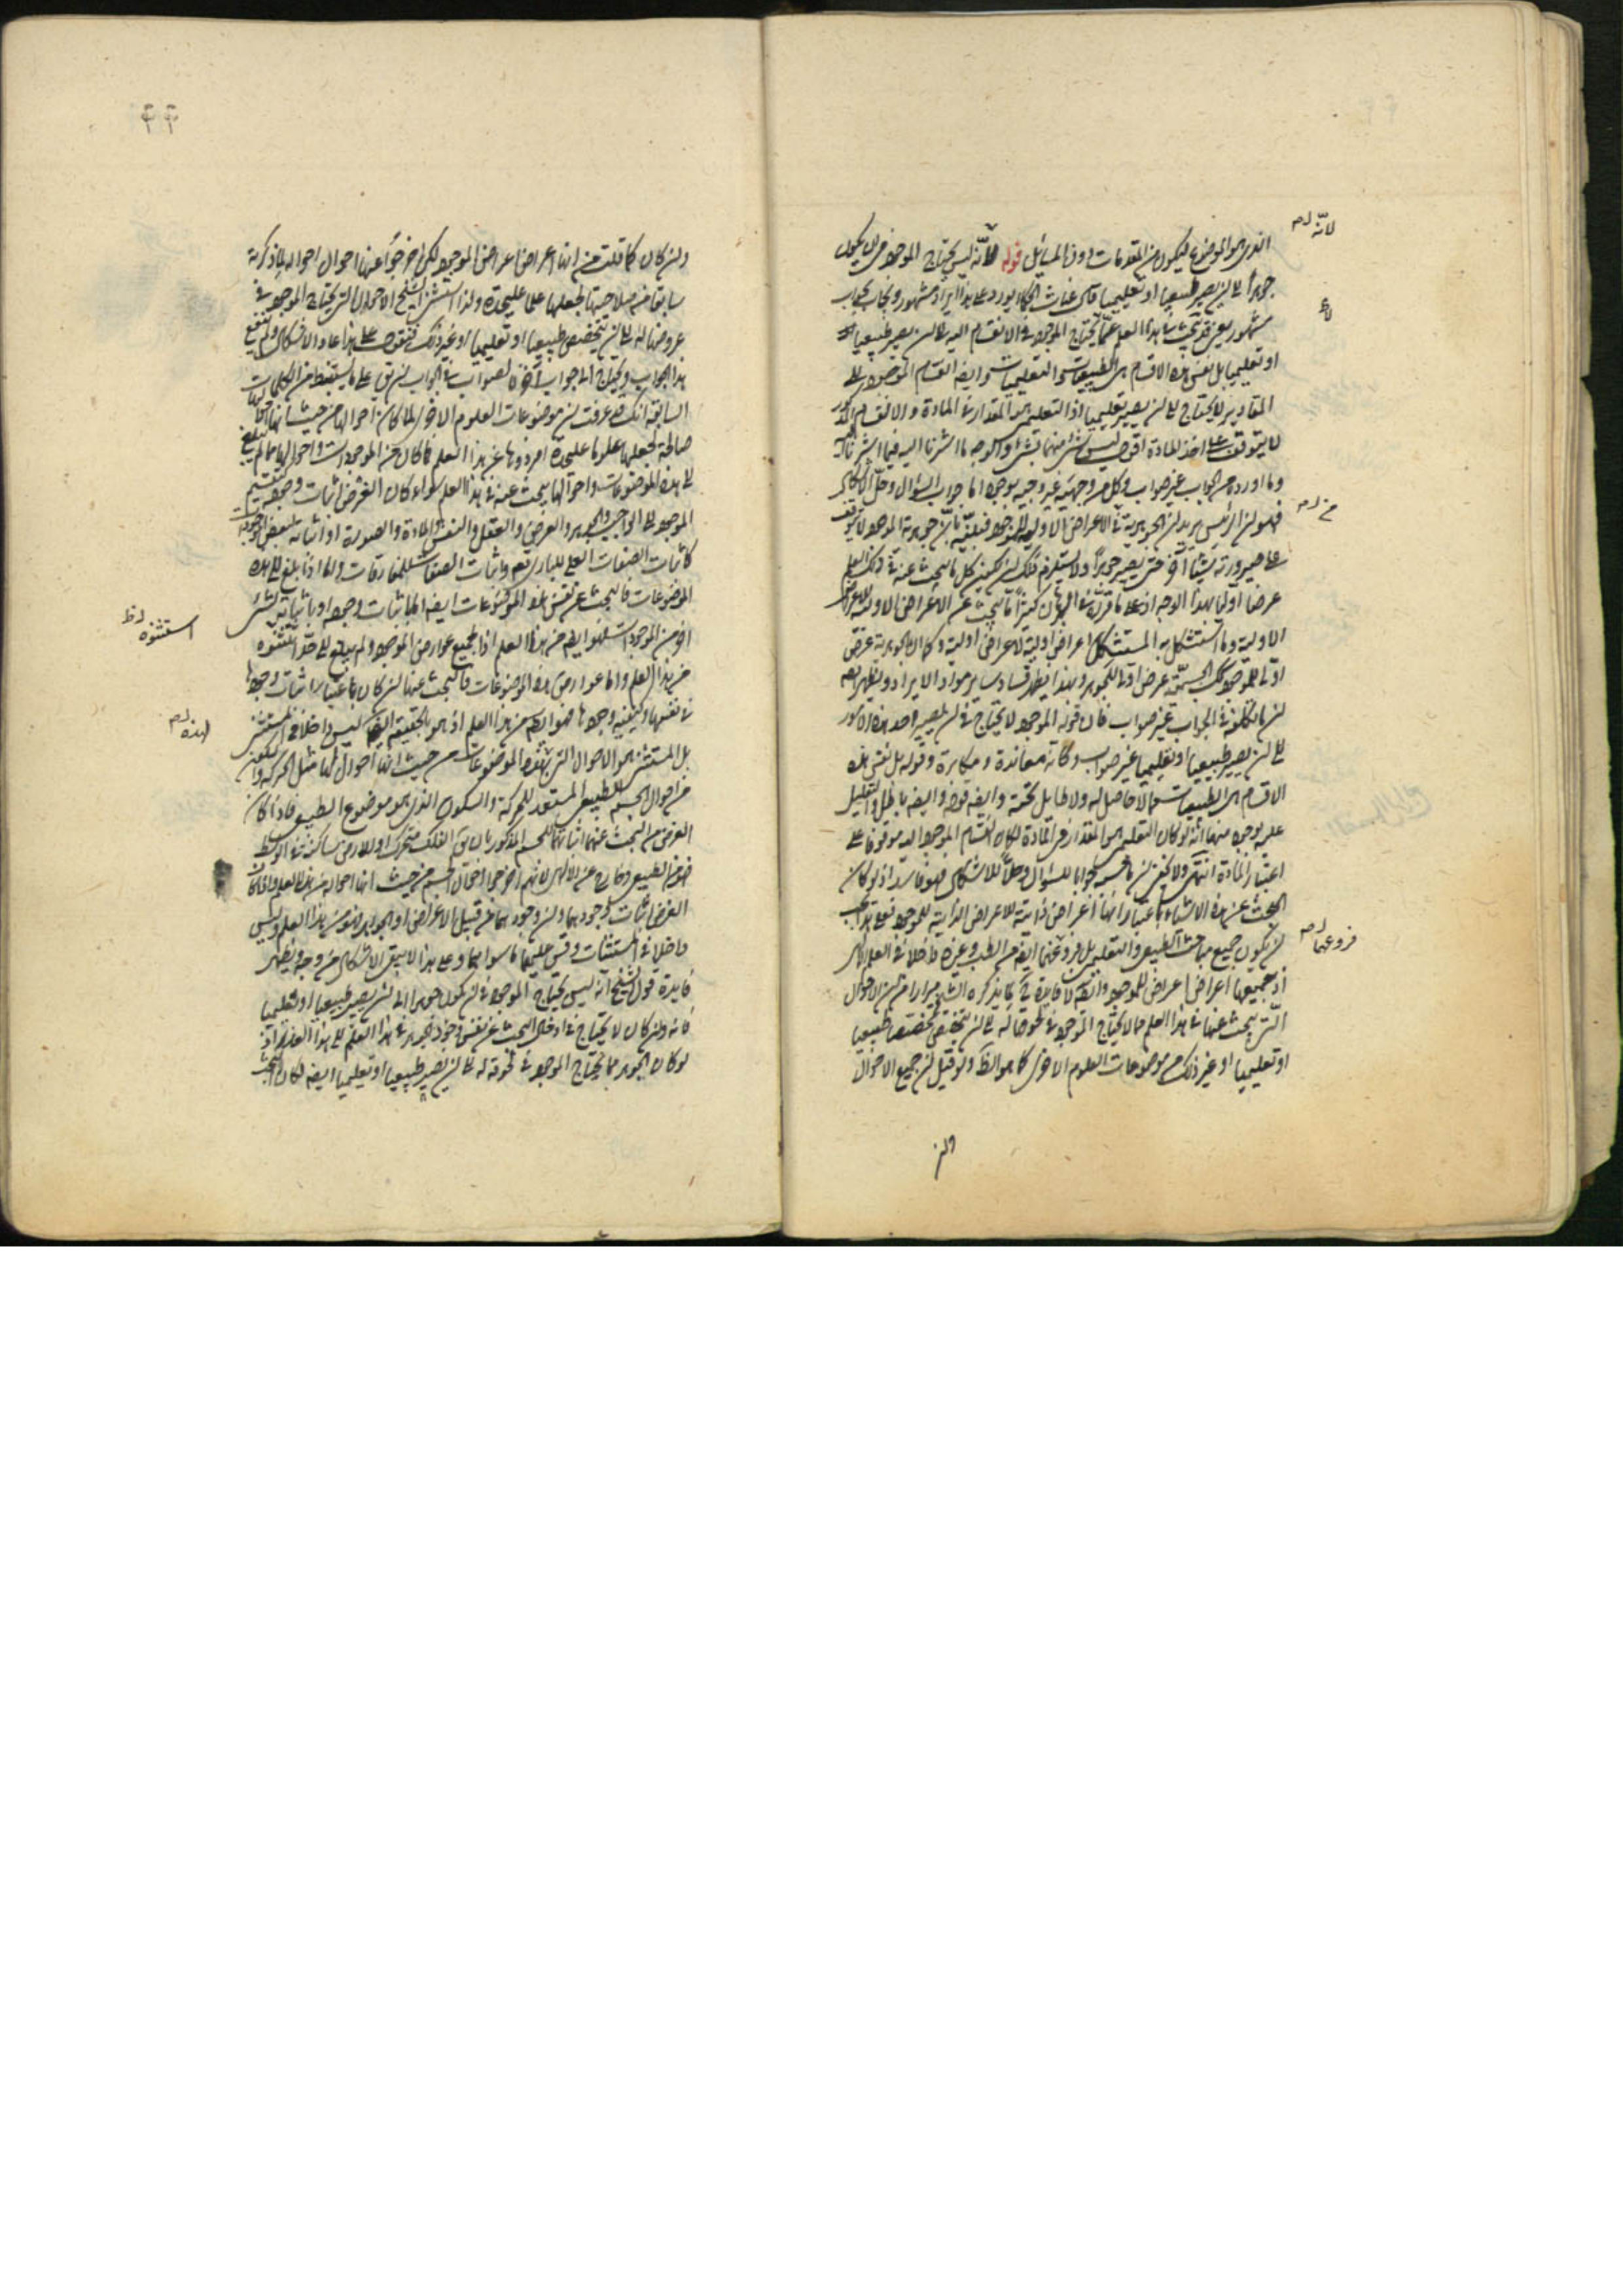 الذى هو الموضوع ليكون من المقدمات او من المسائل قوله لانه ليس يحتاج الموجود فى ان يكون
لانه
جوهرا الى ان يصير طبيعيا او تعليميا قال غياث الحكماء يورد على هذا ايراد مشهور ويجاب بجواب
مشهور هذا العلم عما يحتاج الموجود فى الانقسام اليه الى ان يصير طبيعيا
او تعليميا بل نفس هذه الاقسام هى الطبيعيات والتعليميات وايضا انقسام الموجود الى
المقادير لا يحتاج الى ان يصير تعليميا اذ التعليمى هو المقدار فى المادة والانقسام المذكور
لا يتوقف على اخذ المادة اقول ليس شىء منهما بشىء والوجه ما اشرنا اليه
وما اورده من الجواب غير صواب وكل من وجهيه غير وجيه بوجوه اما جواب السؤال وحل الاشكال
فهو ان الرئيس يريد ان الجوهرية من الاعراض الاولية للموجود جوهرية الموجود لا يتوقف
على صيرورته شيئا آخر حتى يصير جوهرا ولا يستلزم ذلك ان يكون كل ما يبحث عنه فى ذلك العلم
عرضا اوليا بهذا الوجه اذ على ما قرر فى البرهان كثيرا ما يبحث عن الاعراض الاولية للاعراض
الاولية وما استشكل به المستشكل اعراض اولية لاعراض اولية كما ان الجوهرية عرض
اولى للموجود كك الجسمية عرض اولى للجوهر وبهذا يظهر فساد ساير مواد الايراد ويظهر ايضا
ان ما تكلفوه فى الجواب غير صواب فان قوله الموجود لا يحتاج فى ان يصير احد هذه الامور
الى ان يصير طبيعيا او تعليميا غير صواب وكانه معاندة ومكابرة وقوله بل نفس هذه
الاقسام هى الطبيعيات مما لا حاصل له ولا طايل تحته وايضا قوله وايضا باطل والتعليل
عليه بوجوه منها انه لو كان التعليمى هو المقدار فى المادة لكان انقسام الموجود اليه موقوفا على
اعتبار المادة انتهى ولا يخفى ان ما جوابا للسؤال وحلا للاشكال فهو فاسد اذ لو كان
البحث عن هذه الاشياء باعتبار انها اعراض ذاتية للاعراض الذاتية للموجود فعلى هذا يجب
ان يكون جميع مباحث الطبيعى والتعليمى بل فروعهما ايضا من الطب وغيره داخلا فى العلم الالهى
فروعهما
اذ جميعها اعراض اعراض للموجود وايضا لا فايدة فى ما يذكره الشيخ مرارا من ان الاحوال
التى يبحث عنها فى هذا العلم مما لا يحتاج الموجود فى لحوقها له الى ان يتخصص تخصصا طبيعيا
او تعليميا او غير ذلك من موضوعات العلوم الاخرى كما هو الظ ولو قيل ان جميع الاحوال
وان كان كما قلت من انها اعراض اعراض الموجود لكن اخرجوا عنها احوال احواله لما ذكر به
سابقا من صلاحيتها لجعلها علما عليحدة ولذا استثنى الشيخ الاحوال التى يحتاج الموجود فى
عروضها له الى ان يتخصص طبيعيا او تعليميا او غير ذلك فنقول على هذا عاد الاشكال ولم ينفع
هذا الجواب ويحتاج الى جواب آخر والصواب فى الجواب ان يق على ما يستنبط من الكلمات
السابقة انك قد عرفت ان موضوعات العلوم الاخر لما كان احوالها من حيث انها احوالها
صالحة لجعلها علوما عليحدة افردوها عن هذا العلم فما كان من الموجودات واحوالها مما لم يبلغ
الى هذه الموضوعات واحوالها يبحث عنه فى هذا العلم سواء كان الغرض اثبات وجوده كتقسيم
الموجود الى الواجب والجوهر والعرض والعقل والنفس والمادة والصورة او اثباته لبعض الموجودات
كاثبات الصفات العلى للبارى تعم واثبات الصفات للمفارقات واما اذا بلغ الى هذه
الموضوعات فالبحث عن نفس هذه الموضوعات ايضا اما باثبات وجوده او باثباته لشىء
آخر من الموجودات فهو ايضا من هذا العلم اذا لجميع عوارض الموجود ولم يبلغ الى حد استثنوه
استثنوه ظ
من هذا العلم واما عوارض هذه الموضوعات فالبحث عنها ان كان باعتبار اثبات وجودها
فى نفسها وكيفية وجودها فهو ايضا من هذا العلم اذ هو بالحقيقة ايضا ليس داخلا فى المستثنى
بل المستثنى هو الاحوال التى لهذه الموضوعات من حيث انها احوال لها مثل الحركة والسكون
من احوال الجسم الطبيعى المستعد للحركة والسكون الذى هو موضوع الطبيعى فاذا كان
الغرض من البحث عنهما اثباتهما للجسم المذكور بان يق الفلك متحرك او الارض ساكنة فى الوسط
فهو من الطبيعى وخارج عن الالهى لانهم اخرجوا احوال الجسم من حيث انها احواله من هذا العلم واذا كان
الغرض اثبات وجودهما وان وجودهما من قبيل الاعراض او الجواهر فهو من هذا العلم وليس
داخلا فى المستثنيات وقس عليهما ما سواهما وعلى هذا لا يبقى الاشكال من وجه ويظهر
فايدة قول الشيخ انه ليس يحتاج الموجود فى ان يكون جوهرا الى ان يصير طبيعيا او تعليميا
فانه وان كان لا يحتاج فى ادخال البحث عن نفس وجود الجوهر فى هذا العلم الى هذا العذر اذ
لو كان الجوهر مما يحتاج الموجود فى لحوقه له الى ان يصير طبيعيا او تعليميا ايضا لكان البحث